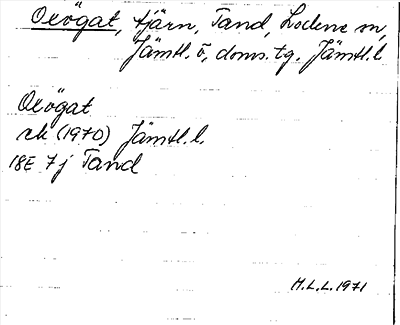 Oxögat, tjärn, Tand, Lockne sn,
Jämtl. ö, doms. tg. Jämtl. l
Oxögat
ek (1970) Jämtl. l.
18E 7j Tand
M.L.L. 1971